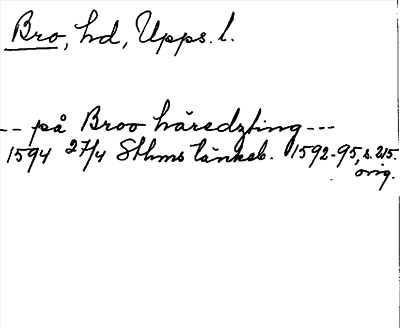 Bro, hd, Upps. l.
-- på Broo häredzting ---
1594 27/4 Sthms tänkeb. 1592-95, s. 215.
orig.